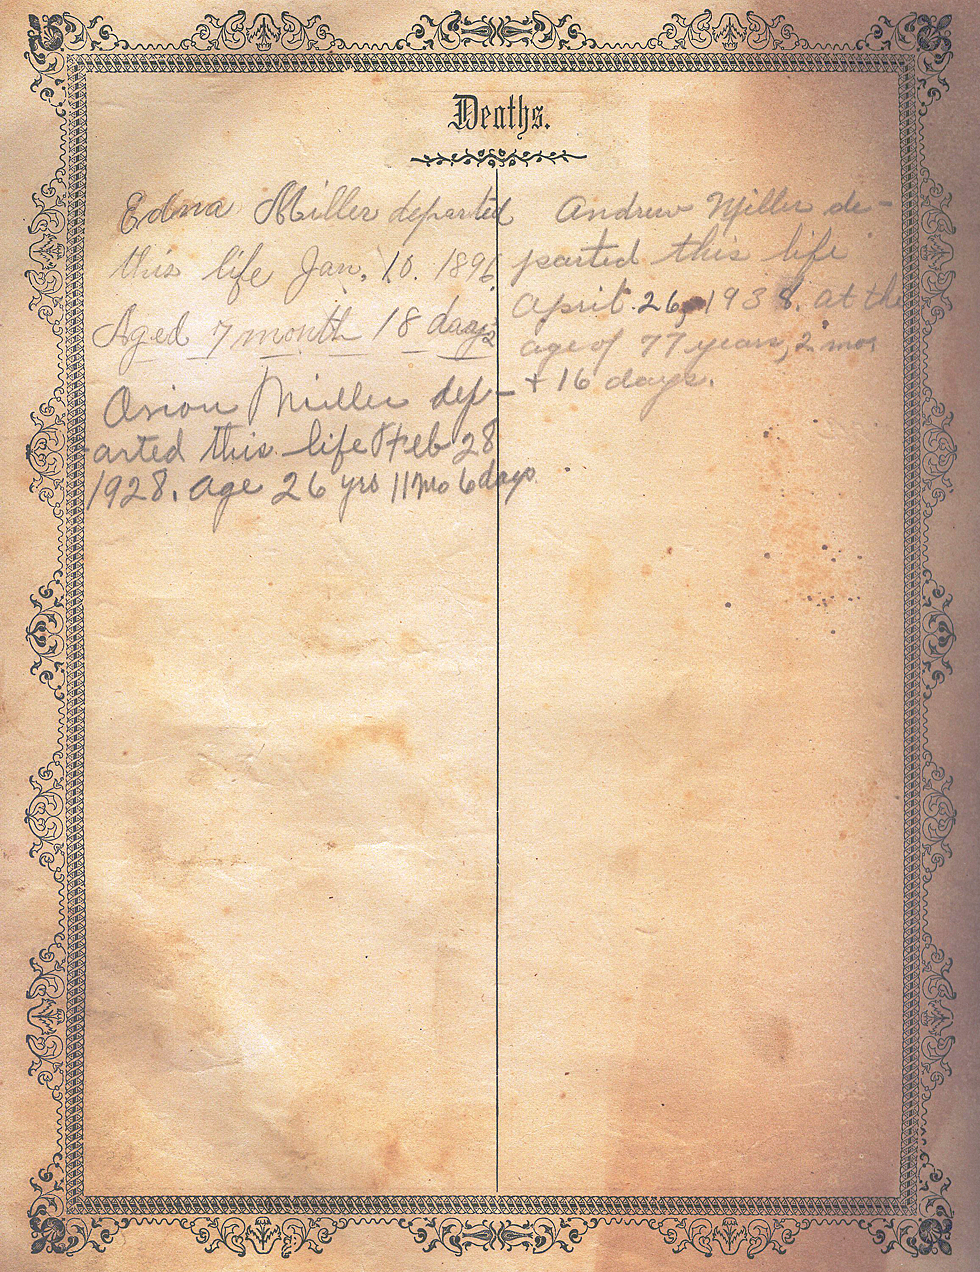 Deaths.
Edna Miller departed
this life Jan. 10. 1896
Aged 7 month 18 days
Orion Miller dep-
arted this life Feb 28
1928. age 26 yrs 11 mo 6 days
Andrew Miller de-
parted this life
April 26, 1938. at the
age of 77 years, 2 mos
+ 16 days.